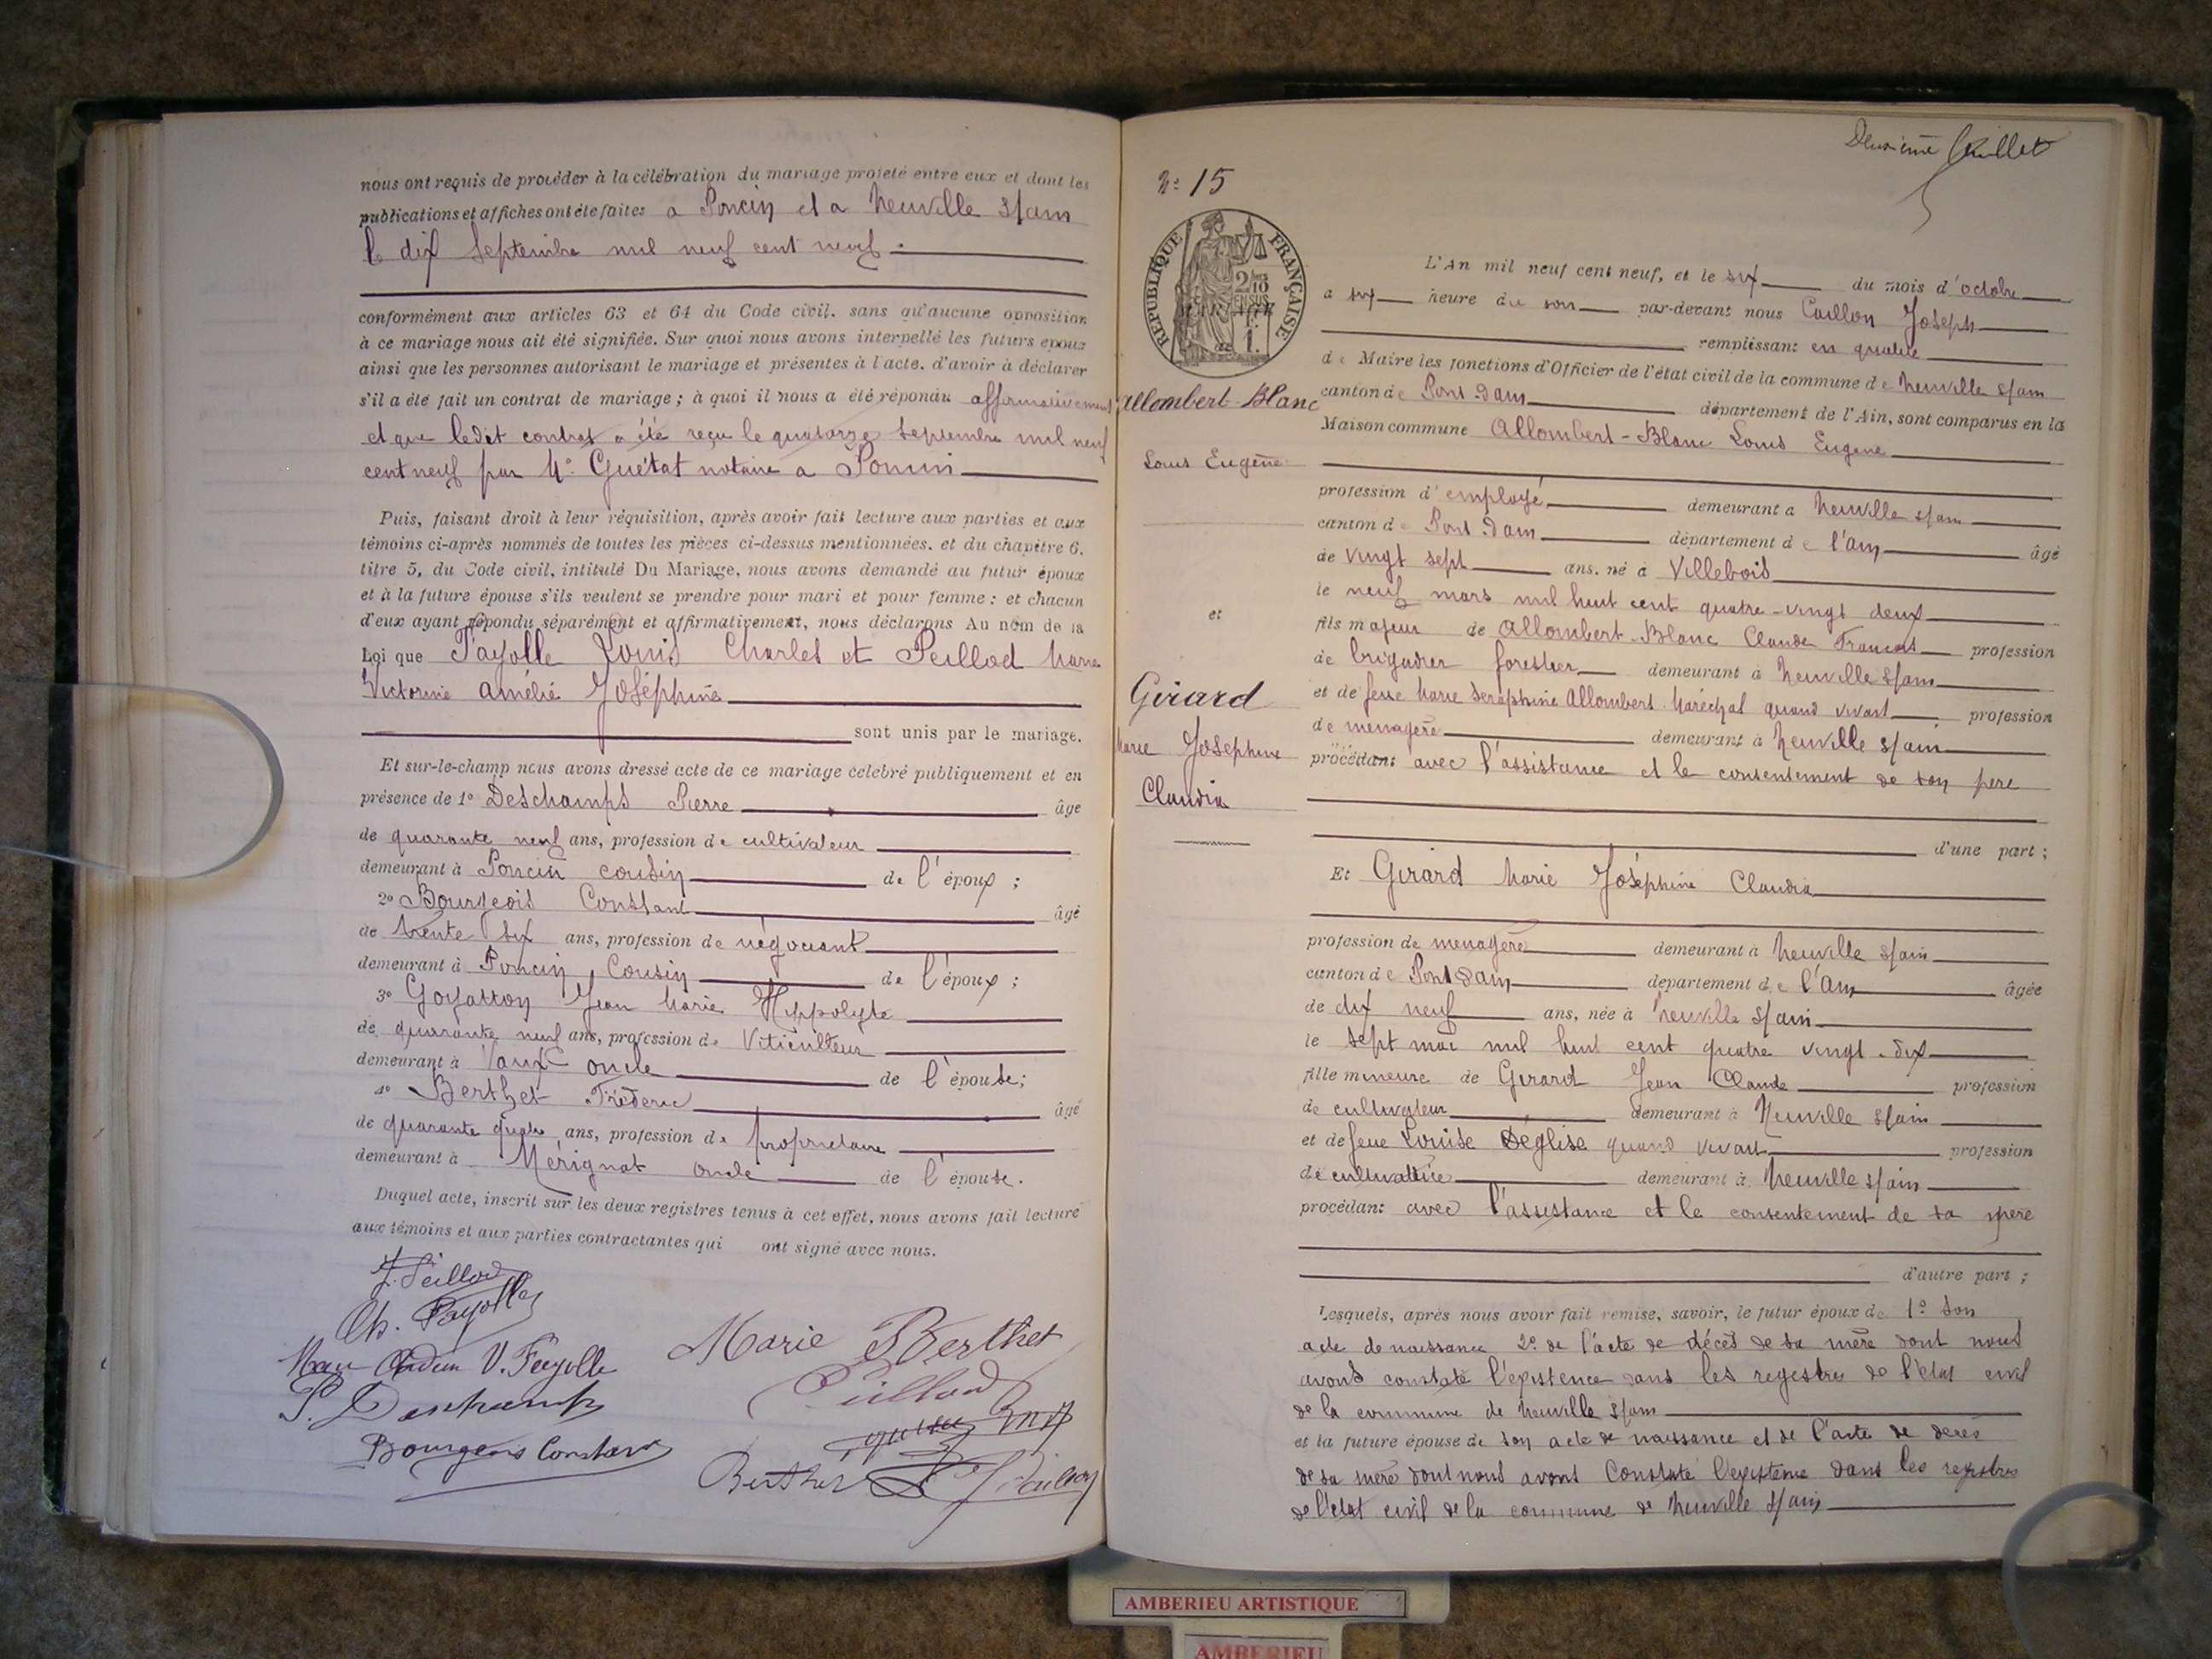 nous ont requis de procéder à la célébration du mariage projeté entre eux et dont les
publications et affiches ont été faites a Poncin et a Neuville s/ain
le dix septembre mil neuf cent neuf.
conformément aux articles 63 et 64 du Code civil, sans qu'aucune opposition
à ce mariage nous ait été signifiée. Sur quoi nous avons interpellé les futurs époux
ainsi que les personnes autorisant le mariage et présentes à l'acte, d'avoir à déclarer
s'il a été fait un contrat de mariage ; à quoi il nous a été répondu affirmativement
et que ledit contrat a été reçu le quatorze septembre mil neuf
cent neuf par Me Guétat notaire a Poncin
Puis, faisant droit à leur réquisition, après avoir fait lecture aux parties et aux
témoins ci-après nommés de toutes les pièces ci-dessus mentionnées, et du chapitre 6,
titre 5, du Code civil, intitulé Du Mariage, nous avons demandé au futur époux
et à la future épouse s'ils veulent se prendre pour mari et pour femme : et chacun
d'eux ayant répondu séparément et affirmativement, nous déclarons Au nom de la
Loi que Fayolle Louis Charles et Peillod Marie
Victorine Amélie Joséphine
sont unis par le mariage.
Et sur-le-champ nous avons dressé acte de ce mariage célébré publiquement et en
présence de 1° Deschamps Pierre âgé
de quarante neuf ans, profession de cultivateur
demeurant à Poncin cousin de l'époux ;
2° Bourgeois Constant âgé
de trente six ans, profession de négociant
demeurant à Poncin, Cousin de l'époux ;
3° Goyatton Jean Marie Hippolyte
de quarante neuf ans, profession de Viticulteur
demeurant à Vaux oncle de l'épouse ;
4° Berthet Fréderic âgé
de quarante quatre ans, profession de propriétaire
demeurant à Mérignat oncle de l'épouse.
Duquel acte, inscrit sur les deux registres tenus à cet effet, nous avons fait lecture
aux témoins et aux parties contractantes qui ont signé avec nous.
J. Peillod
Ch. Fayolle
V. Fayolle
Marie Berthet
P. Deschamps
Peillod
Bourgeois Constant
Berthet
Deuxième feuillet
N° 15
REPUBLIQUE FRANÇAISE
Allombert-Blanc
Louis Eugène
et
Girard
Marie Josephine
Claudia
L'An mil neuf cent neuf, et le six du mois d'octobre
a six heure du soir par-devant nous Caillon Joseph
remplissant en qualité
de Maire les fonctions d'Officier de l'état civil de la commune de Neuville s/ain
canton de Pont d'ain département de l'Ain, sont comparus en la
Maison commune Allombert-Blanc Louis Eugene
profession d'employé demeurant a Neuville s/ain
canton de Pont d'ain département de l'Ain âgé
de vingt sept ans, né à Villebois
le neuf mars mil huit cent quatre-vingt deux
fils majeur de Allombert-Blanc Claude Francois profession
de brigadier forestier demeurant à Neuville s/ain
et de feue Marie Seraphine Allombert-Maréchal quand vivait profession
de menagère demeurant à Neuville s/ain
procédant avec l'assistance et le consentement de son pere
d'une part ;
Et Girard Marie Joséphine Claudia
profession de menagère demeurant à Neuville s/ain
canton de Pont d'ain département de l'Ain âgée
de dix neuf ans, née à Neuville s/ain
le sept mai mil huit cent quatre vingt-dix
fille mineure de Girard Jean Claude profession
de cultivateur demeurant à Neuville s/ain
et de feue Louise Déglise quand vivait profession
de cultivatrice demeurant à Neuville s/ain
procédant avec l'assistance et le consentement de sa pere
d'autre part ;
Lesquels, après nous avoir fait remise, savoir, le futur époux de 1° son
acte de naissance 2° de l'acte de décès de sa mère dont nous
avons constaté l'existence dans les registres de l'état civil
de la commune de Neuville s/ain
et la future épouse de son acte de naissance et de l'acte de décès
de sa mère dont nous avons Constaté l'existence dans les registres
de l'état civil de la commune de Neuville s/ain
AMBERIEU ARTISTIQUE
AMBERIEU